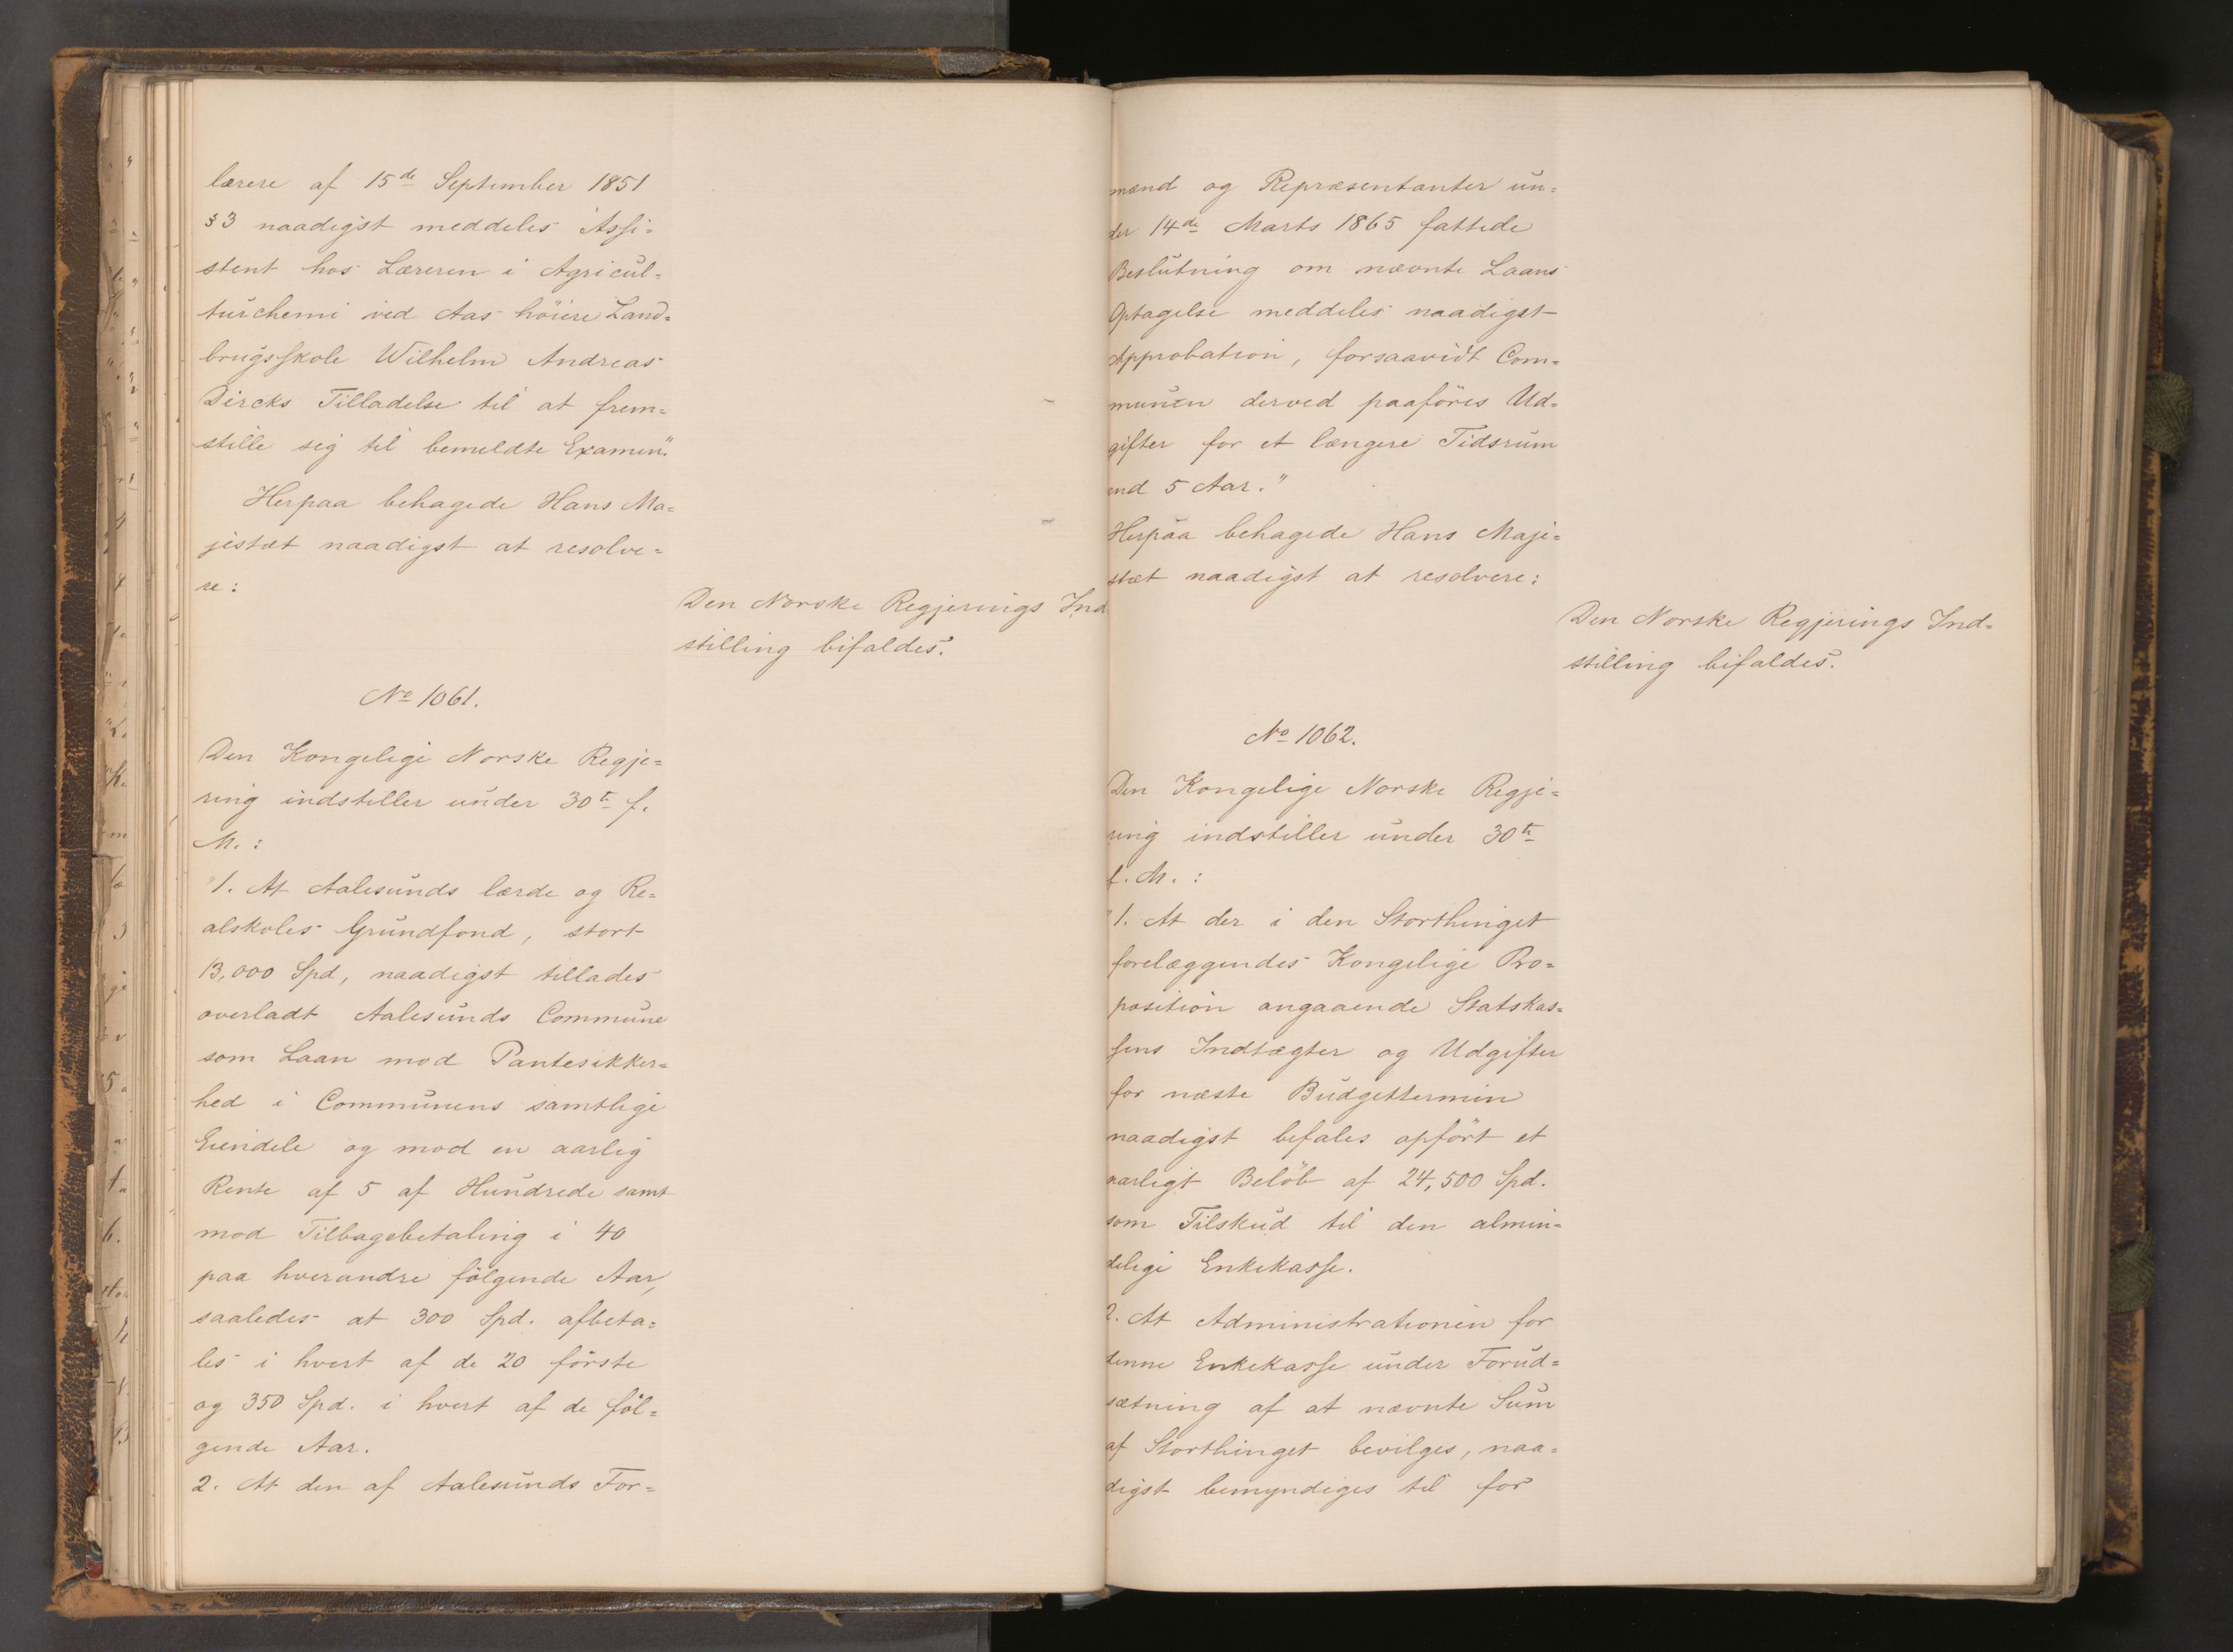 lærere af 15de September 1851
§3 naadigst meddeles Assi=
stent hos Læreren i Agricul=
turchemi ved Aas höiere Land=
brugsskole Wilhelm Andreas
Dircks Tilladelse til at frem=
stille sig til bemeldte Examen."
Herpaa behagede Hans Ma=
jestæt naadigst at resolve=
re:
Den Norske Regjerings Ind
stilling bifaldes.
No 1061.
Den Kongelige Norske Regje=
ring indstiller under 30te f.
M.:
"1. At Aalesunds lærde og Re=
alskoles Grundfond, stort
13,000 Spd, naadigst tillades
overladt Aalesunds Commune
som Laan mod Pantesikker=
hed i Communens samtlige
Eiendele og mod en aarlig
Rente af 5 af Hundrede samt
mod Tilbagebetaling i 40
paa hverandre fölgende Aar,
saaledes at 300 Spd. afbeta=
les i hvert af de 20 förste
og 350 Spd. i hvert af de föl=
gende Aar.
2. At den af Aalesunds For=
mænd og Repræsentanter un=
der 14de Marts 1865 fattede
Beslutning om nævnte Laans
Optagelse meddeles naadigst
Approbation, forsaavidt Com=
munen derved paaföres Ud=
gifter for et længere Tidsrum
end 5 Aar."
Herpaa behagede Hans Maje=
stæt naadigst at resolvere:
Den Norske Regjerings Ind=
stilling bifaldes.
No 1062.
Den Kongelige Norske Regje=
ring indstiller under 30te
f. M.:
"1. At der i den Storthinget
forelæggendes Kongelige Pro=
position angaaende Statskas=
sens Indtægter og Udgifter
for næste Budgettermin
naadigst befales opfört et
aarligt Belöb af 24,500 Spd.
som Tilskud til den almin=
delige Enkekasse.
2. At Administrationen for
denne Enkekasse under Forud=
sætning af at nævnte Sum
af Storthinget bevilges, naa=
digst bemyndiges til for